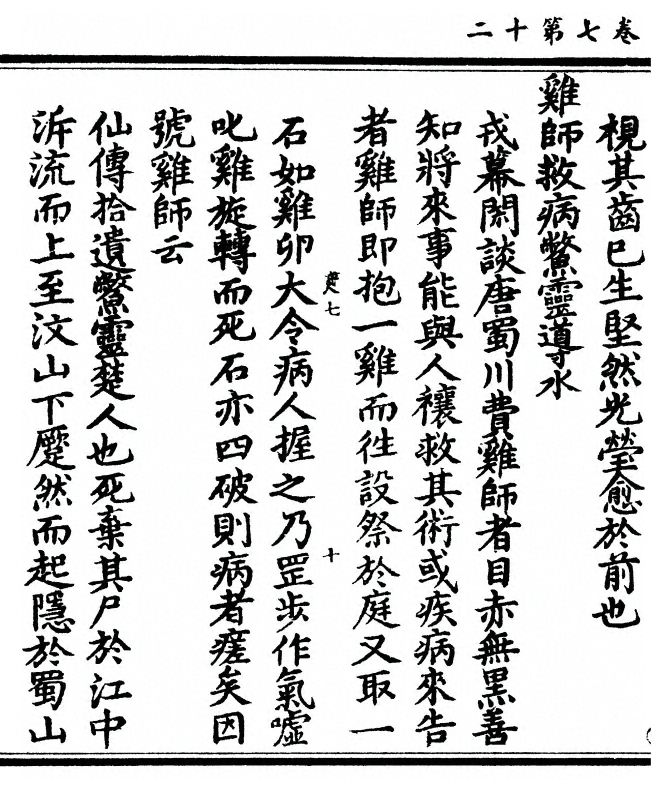 卷七第十二
視其齒已生堅然光瑩愈於前也
雞師救病鱉靈導水
戎幕閑談唐蜀川費雞師者目赤無黑善
知將來事能與人禳救其術或疾病來告
者雞師即抱一雞而徃設祭於庭又取一
楚七
十
石如雞卵大令病人握之乃罡步作氣噓
叱雞旋轉而死石亦四破則病者瘥矣因
號雞師云
仙傳拾遺鱉靈楚人也死棄其尸於江中
泝流而上至汶山下歷然而起隱於蜀山